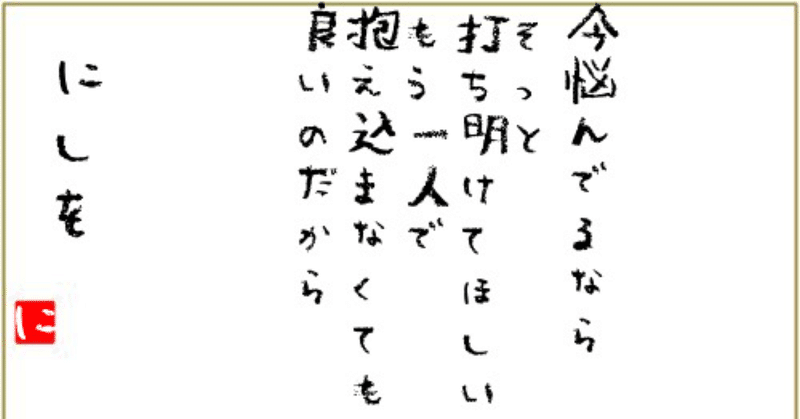 今悩んでるなら
そっと
打ち明けてほしい
もう一人で
抱え込まなくても
良いのだから
にしを
に